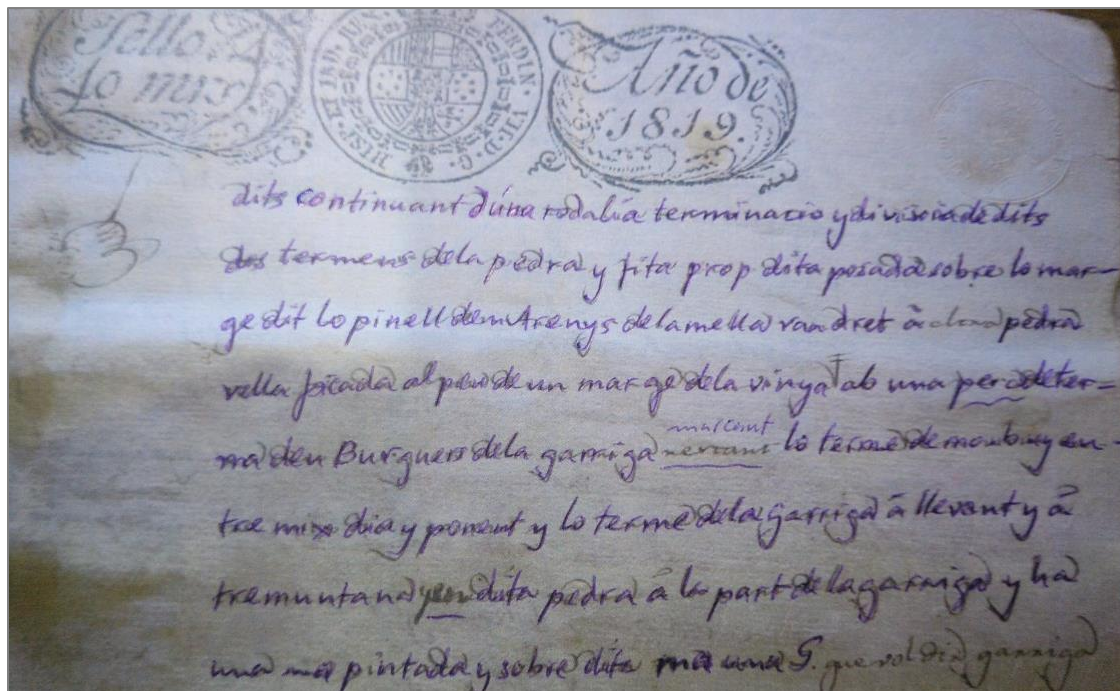 Sello
4o mrs.
HISP. ET IND. R. FERDIN. VII. D. G.
Año de
1819.
dits continuant dúna rodalía terminacio y divisoia de dits
dos termens de la pedra y fita prop dita posada sobre lo mar-
ge dit lo pinell dem Arenys de la mella van dret â pedra
vella ficada al peu de un marge de la vinya ab una
ma den Burguers de la garriga lo terme de monbuy en-
tre mix dia y ponent y lo terme de la Garriga â llevant y â
tremuntana dita pedra â la part de la garriga y ha
una ma pintada y sobre dita ma una G. que vol dir garriga